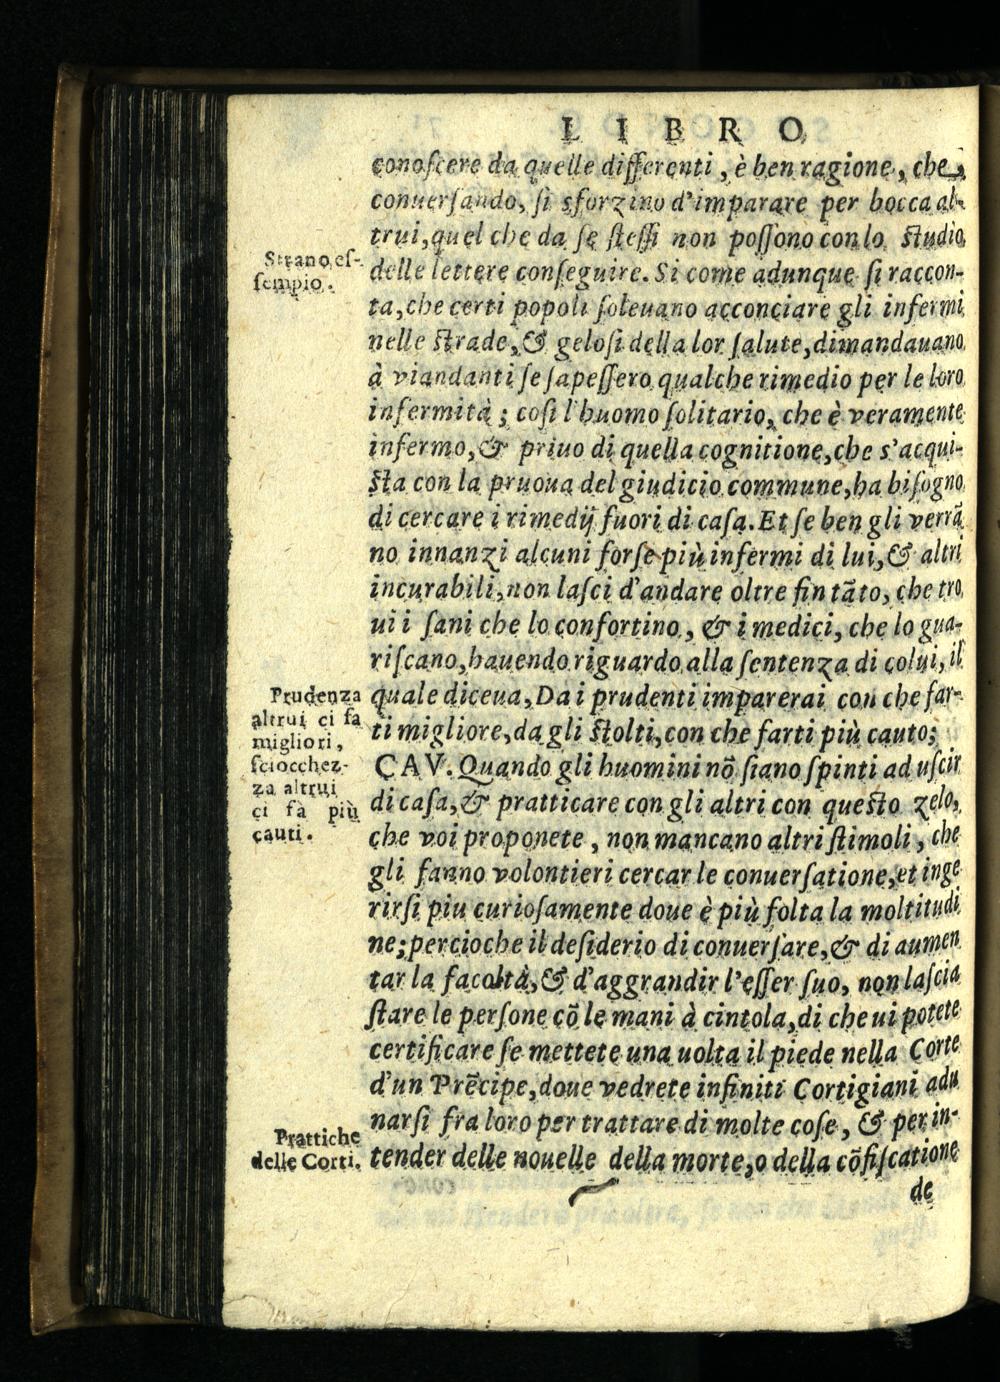 LIBRO
conoſcere da quelle differenti, è ben ragione, che
conuerſando, ſi sforzino d'imparare per bocca al-
trui, quel che da ſe ſteſſi non poſſono con lo ſtudio
Strano eſ-
ſempio.
delle lettere conſeguire. Si come adunque ſi raccon-
ta, che certi popoli ſoleuano acconciare gli infermi
nelle ſtrade, & geloſi della lor ſalute, dimandauano
à viandanti ſe ſapeſſero qualche rimedio per le loro
infermità; coſi l'huomo ſolitario, che è veramente
infermo, & priuo di quella cognitione, che s'acqui-
ſta con la pruoua del giudicio commune, ha biſogno
di cercare i rimedij fuori di caſa. Et ſe ben gli verrã
no innanzi alcuni forſe più infermi di lui, & altri
incurabili, non laſci d'andare oltre fin tãto, che tro
ui i ſani che lo confortino, & i medici, che lo gua-
riſcano, hauendo riguardo alla ſentenza di colui, il
Prudenza
altrui ci fa
migliori,
ſciocchez-
za altrui
ci fà più
cauti.
quale diceua, Da i prudenti imparerai con che far-
ti migliore, da gli ſtolti, con che farti più cauto;
CAV. Quando gli huomini nõ ſiano ſpinti ad uſcir
di caſa, & pratticare con gli altri con queſto zelo,
che voi proponete, non mancano altri ſtimoli, che
gli fanno volontieri cercar le conuerſatione, et inge
rirſi piu curioſamente doue è più folta la moltitudi
ne; percioche il deſiderio di conuerſare, & di aumen
tar la facoltà, & d'aggrandir l'eſſer ſuo, non laſcia
ſtare le perſone cõ le mani à cintola, di che ui potete
certificare ſe mettete una uolta il piede nella Corte
d'un Prẽcipe, doue vedrete infiniti Cortigiani adu
narſi fra loro per trattare di molte coſe, & per in-
Prattiche
delle Corti.
tender delle nouelle della morte, o della cõfiſcatione
de